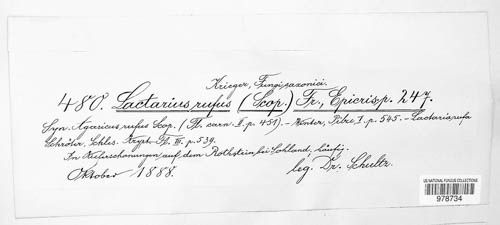 Krieger, Fungi saxonici.
480. Lactarius rufus (Scop.) Fr., Epicris. p. 247.
Syn. Agaricus rufus Scop. (Fl. carn. II. p. 451). – Winter, Pilze I. p. 545. – Lactaria rufa
Schröter, Schles. Krypt. Fl. III. p. 539.
In Kieferschonungen auf dem Rothstein bei Sohland, häufig.
Oktober 1888. leg. Dr. Schultz.
US NATIONAL FUNGUS COLLECTIONS
978734